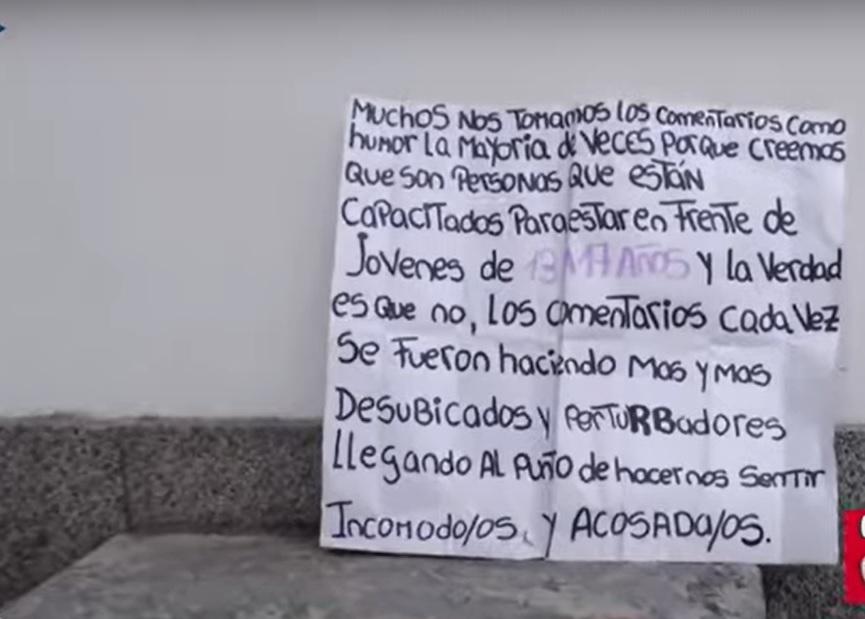 MUCHOS NOS TOMAMOS LOS COMENTARIOS COMO
HUMOR LA MAYORIA de VECES PORQUE CREEMOS
QUE SON PERSONAS QUE ESTÁN
CAPACITADOS PARA ESTAR EN FRENTE de
JOVENES de 13 A 17 AÑOS Y la VERDAD
es QUE no, LOS COMENTARIOS CADA VEZ
SE FUERON haciendo MAS Y MAS
DESUBICADOS Y PERTURBADORES
LLEGANDO AL PUÑO de hacernos SENTIR
INCOMODO/OS, Y ACOSADA/OS.